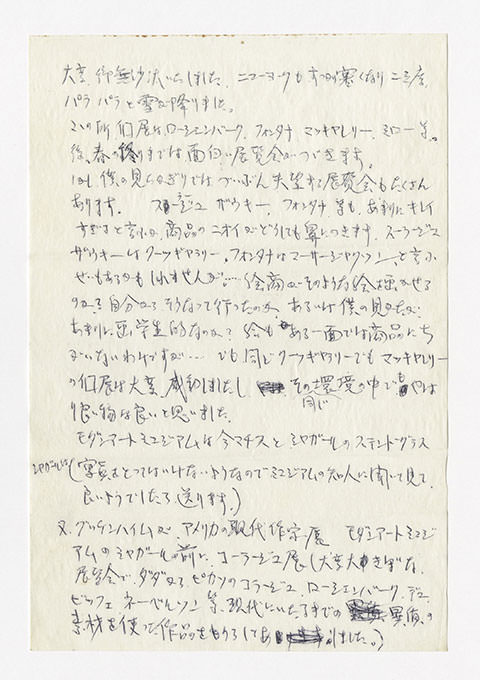 大変御無沙汰いたしました、ニューヨークもすっかり寒くなり 二三度
パラパラと雪が降りました。
この所個展はローシェンバーク、フォンタナ マッキャレリー、ミロー等。
後、春の終りまでは面白い展覧会がつづきます。
但し、僕の見たかぎりではずいぶん失望する展覧会もたくさん
あります。 スーラージュ ザウキー、フォンタナ等も、あまりにキレイ
すぎると言ふか、商品のニオイがどうしても鼻につきます、スーラージュ
ザウキーはクーツギャラリー、フォンタナはマーサージャクソンと言ふ
せいもあるかもしれませんが‥‥ 絵商がそのような絵を描かせる
のか? 自分からそうなって行ったのか、あるいは僕の見かたが
あまりに学生的なのか? 絵もある一面では商品にち
がいないわけですが‥‥ でも同じクーツギャラリーでもマッキャレリー
の個展は大変感動しましたし その環境の中でもやは
同じ
り良い物は良いと思いました。
モダンアートミュジアムは今マチスとシャガールのステンドグラス
シャガールは(写真をとってはいけないようなのでミュジアムの知人に聞いて見て
良いようでしたら送ります。)
又、グッゲンハイムが、アメリカの現代作家展 モダンアートミュジ
アムのシャガールの前に、コーラージュ展(大変大きぼな
展覧会で、ダダから、ピカソのコラージュ、ローシェンバーク、デュ
ビッフェ ネーベルソン等、現代にいたるまでの 異質の
素材を使った作品をもうらしてありました。)